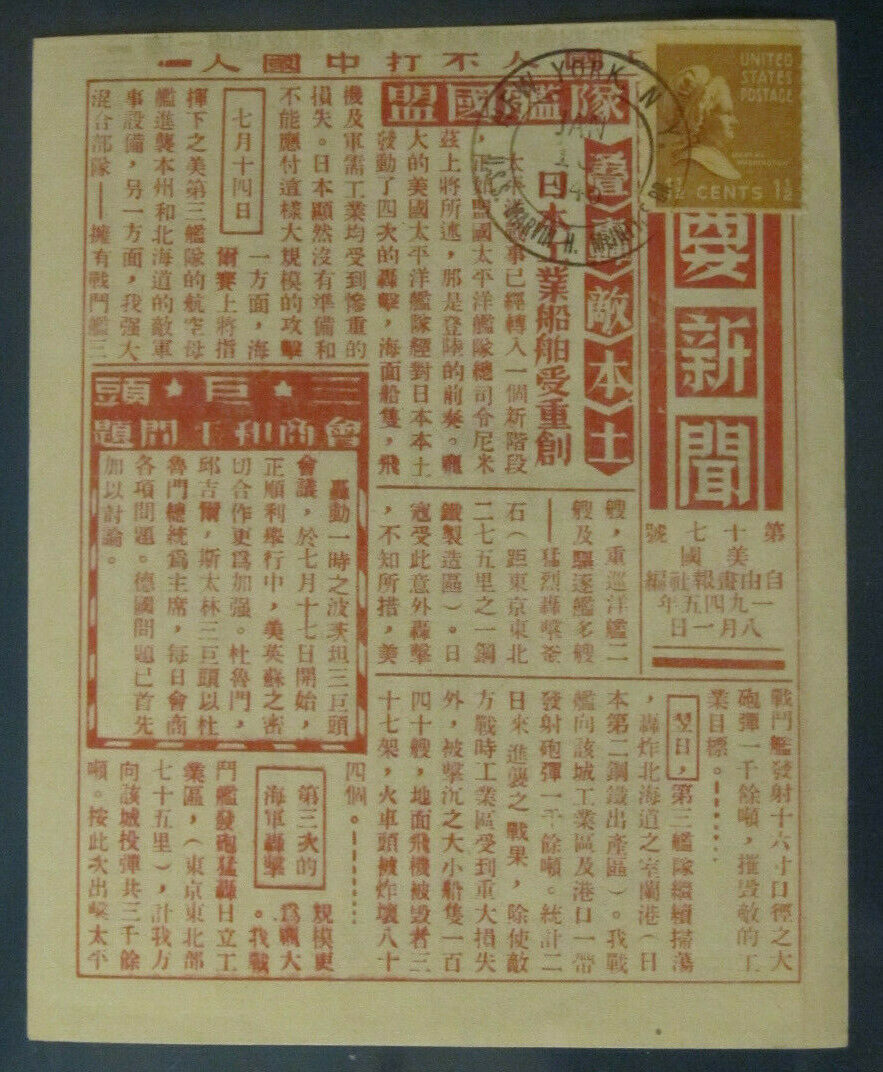 國人不打中國人
UNITED STATES POSTAGE
1½ CENTS 1½
NEW YORK N.Y.
JAN
要新聞
第十七號
美國
自由畫報社編
一九四五年
八月一日
盟國艦隊
敵本土
日本 業船舶受重創
太 事已經轉入一個新階段
,正如盟國太平洋艦隊總司令尼米
茲上將所述,那是登陸的前奏。龐
大的美國太平洋艦隊經對日本本土
發動了四次的轟擊,海面船隻,飛
機及軍需工業均受到慘重的
損失。日本顯然沒有準備和
不能應付這樣大規模的攻擊
七月十四日
一方面,海
爾賽上將指
揮下之美第三艦隊的航空母
艦進襲本州和北海道的敵軍
事設備,另一方面,我强大
混合部隊——擁有戰鬥艦三
艘,重巡洋艦二
艘及驅逐艦多艘
——猛烈轟擊釜
石(距東京東北
二七五里之一鋼
鐵製造區)。日
寇受此意外轟擊
,不知所措,美
戰鬥艦發射十六寸口徑之大
砲彈一千餘噸,摧毀敵的工
業目標。……
翌日,第三艦隊繼續掃蕩
,轟炸北海道之室蘭港(日
本第二鋼鐵出產區)。我戰
艦向該城工業區及港口一帶
發射砲彈一千餘噸。統計二
日來進襲之戰果,除使敵
方戰時工業區受到重大損失
外,被擊沉之大小船隻一百
四十艘,地面飛機被毀者三
十七架,火車頭被炸壞八十
四個。……
第三次的
海軍轟擊
規模更
爲龐大
。我戰
鬥艦發砲猛轟日立工
業區,(東京東北部
七十五里),計我方
向該城投彈共三千餘
噸。按此次出擊太平
三巨頭
會商和平問題
轟動一時之波茨坦三巨頭
會議,於七月十七日開始,
正順利舉行中,美英蘇之密
切合作更爲加强。杜魯門,
邱吉爾,斯太林三巨頭以杜
魯門總統爲主席,每日會商
各項問題。德國問題已首先
加以討論。